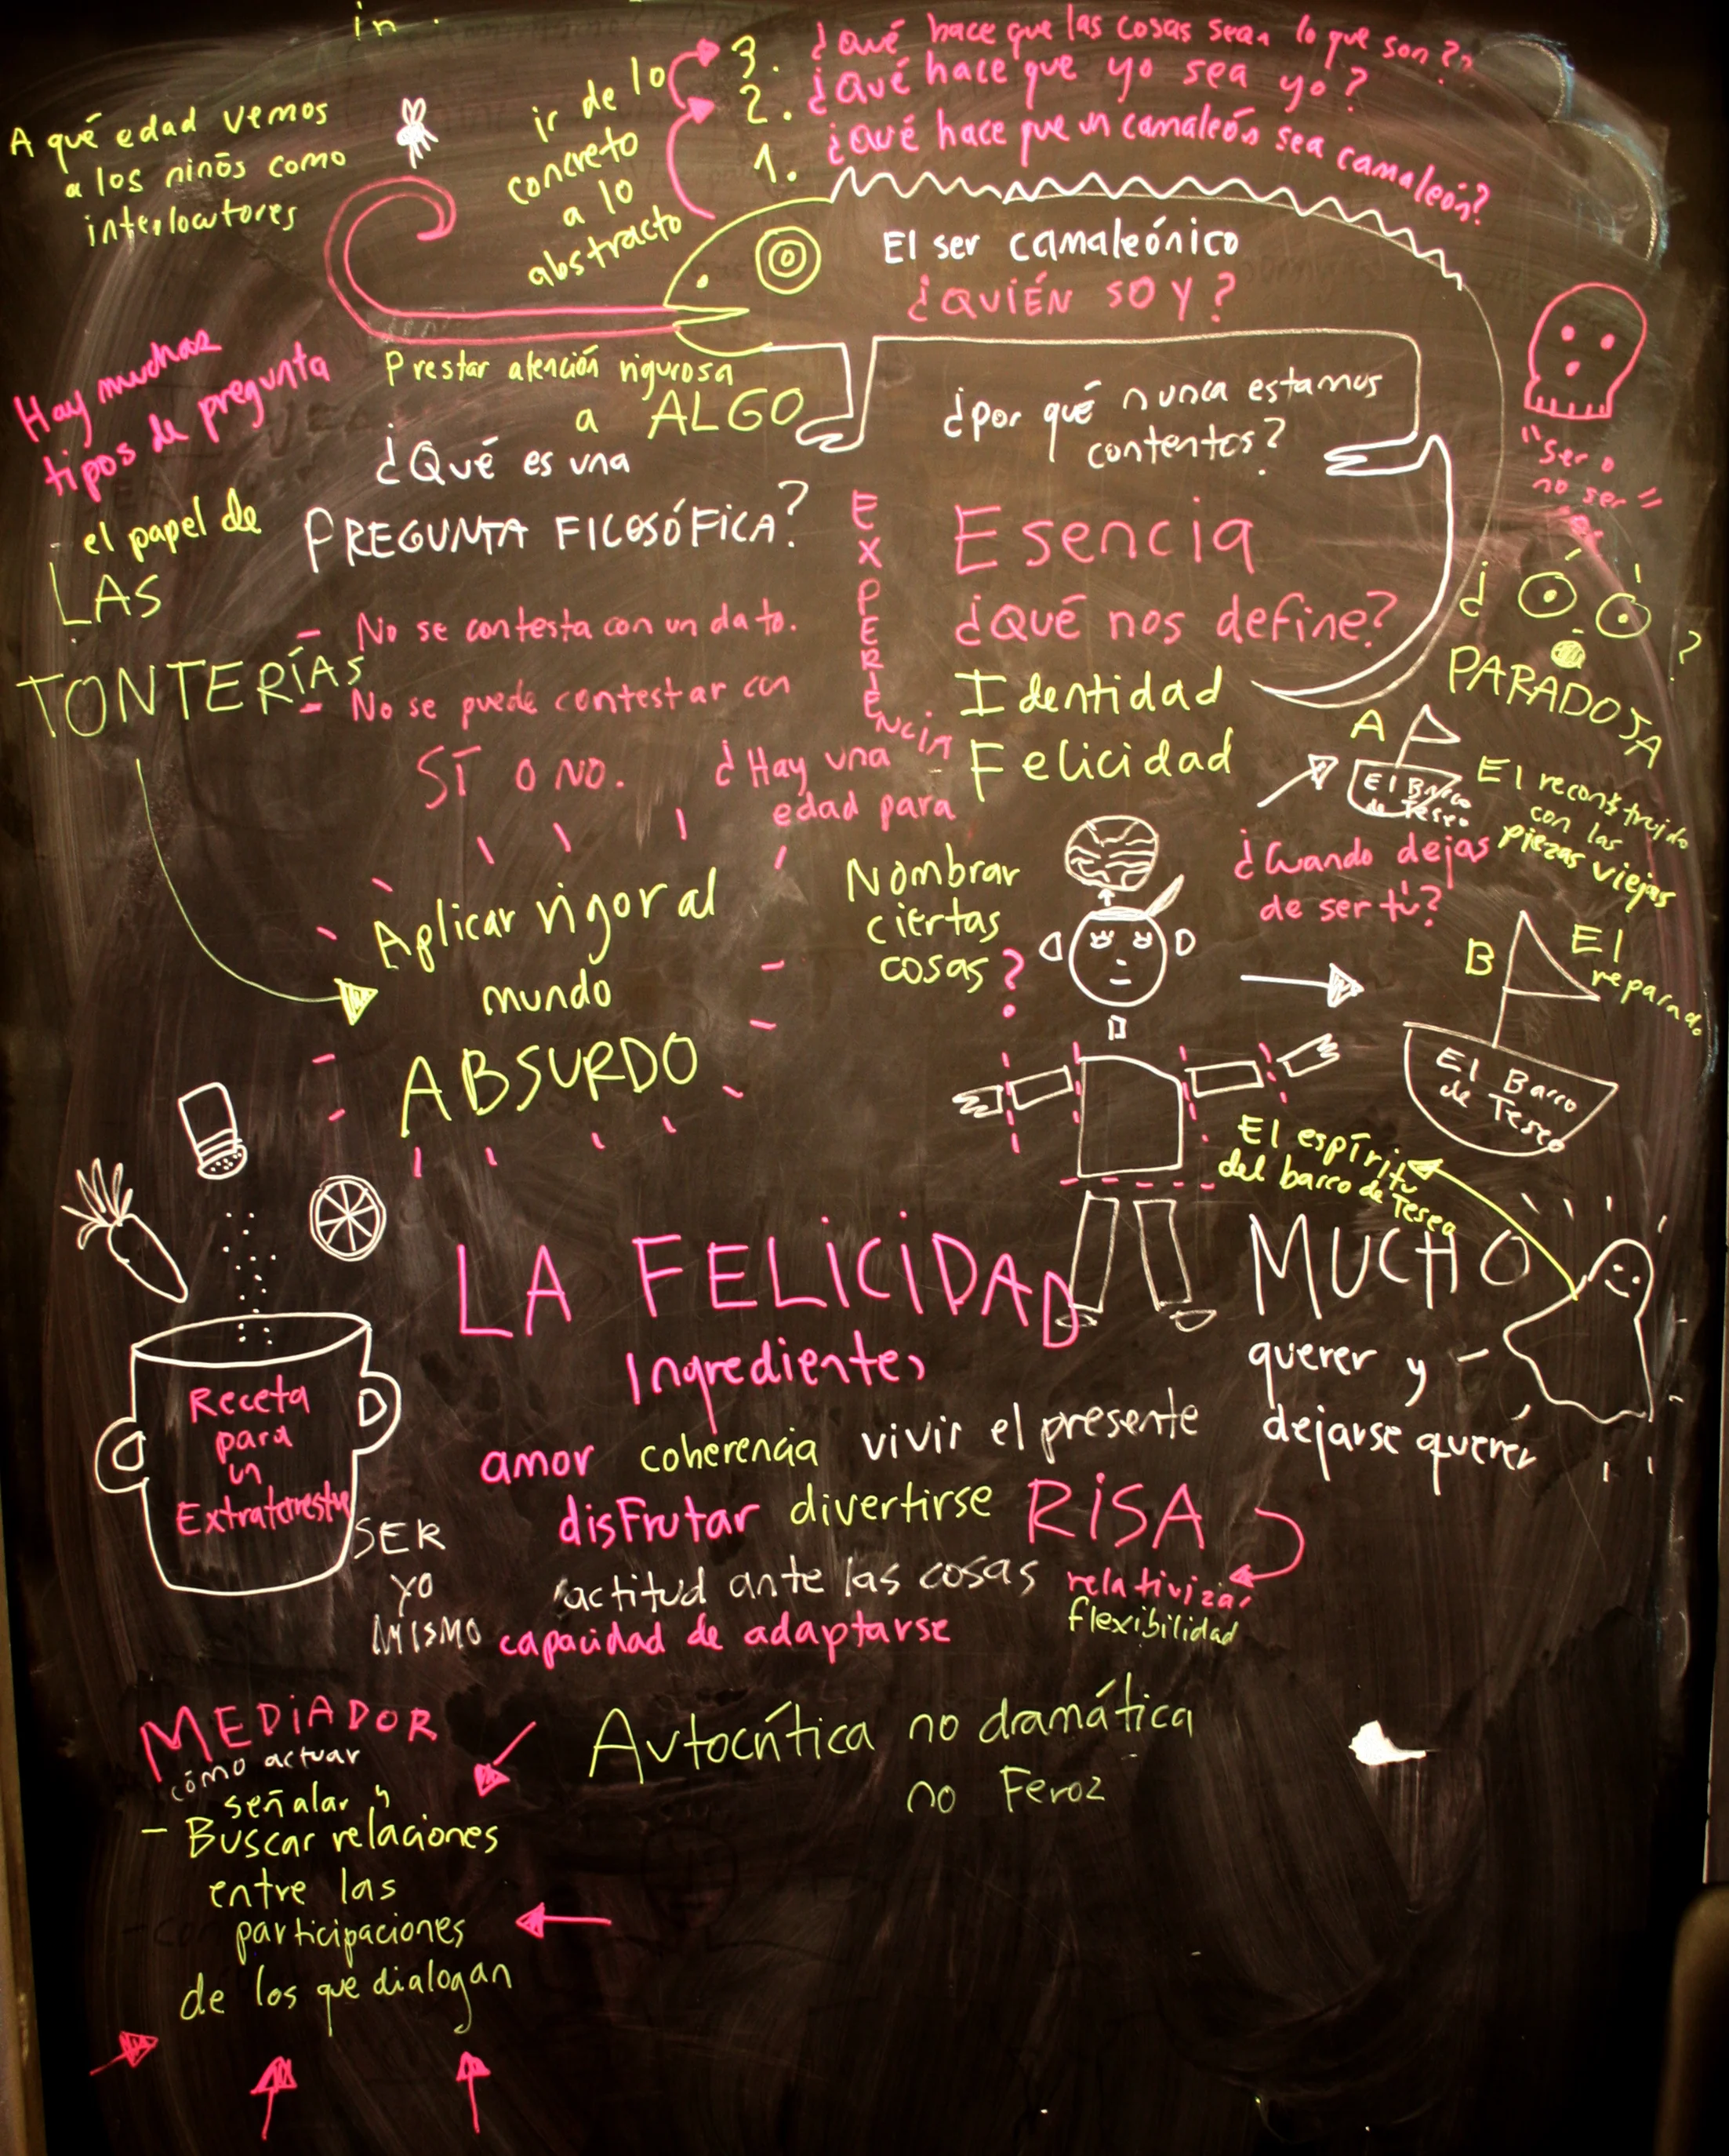 in.
A qué edad vemos
a los niños como
interlocutores
ir de lo
concreto
a lo
abstracto
3. ¿Qué hace que las cosas sean lo que son?
2. ¿Qué hace que yo sea yo?
1. ¿Qué hace que un camaleón sea camaleón?
El ser camaleónico
¿QUIÉN SOY?
Hay muchas
tipos de pregunta
Prestar atención rigurosa
a ALGO
¿Qué es una
PREGUNTA FILOSÓFICA?
- No se contesta con un dato.
- No se puede contestar con
SÍ O NO.
¿por qué nunca estamos
contentos?
"Ser o
no ser"
- el papel de
LAS
TONTERÍAS
EXPERIENCIA
Esencia
¿Qué nos define?
Identidad
Felicidad
¿ ?
PARADOJA
¿Hay una
edad para
Nombrar
ciertas
cosas?
A
El Barco
de Teseo
El reconstruido
con las
piezas viejas
¿Cuando dejas
de ser tú?
B
El
reparado
El Barco
de Teseo
El espíritu
del barco de Teseo
Aplicar rigor al
mundo
ABSURDO
LA FELICIDAD
Ingredientes
MUCHO
querer y
dejarse querer
Receta
para
un
Extraterrestre
amor coherencia vivir el presente
disfrutar divertirse RISA
actitud ante las cosas relativizar
flexibilidad
capacidad de adaptarse
SER
YO
MISMO
MEDIADOR
cómo actuar
señalar y
- Buscar relaciones
entre las
participaciones
de los que dialogan
Autocrítica no dramática
no Feroz